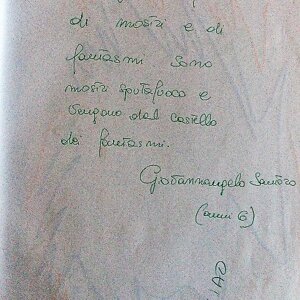 di mostri e di
fantasmi sono
mostri sputafuoco e
vengono dal castello
dei fantasmi.
Giovannangelo Santoro
(anni 6)